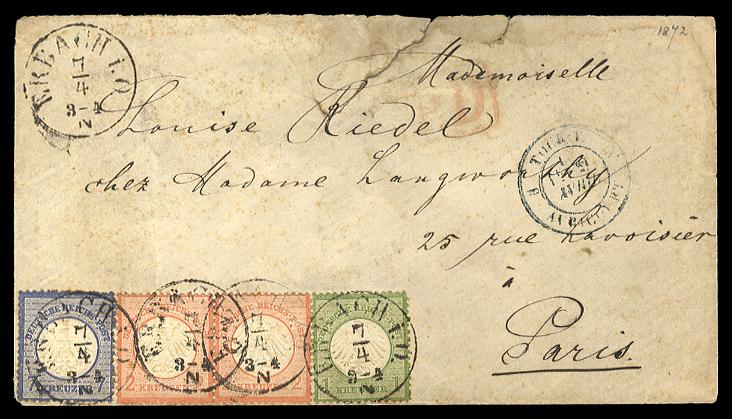 1872
ERBACH I.O.
7/4
3-4
N
Mademoiselle
Louise Riedel
chez Madame Langworthy
25 rue Lavoisier
à
Paris.
AVRICOURT
DEUTSCHE REICHS-POST
KREUZER 7
2 KREUZER 2
KREUZER 2
1 KREUZER
ERBACH I.O.
7/4
3-4
N
ERBACH I.O.
7/4
3-4
N
ERBACH I.O.
7/4
3-4
N
ERBACH I.O.
7/4
3-4
N